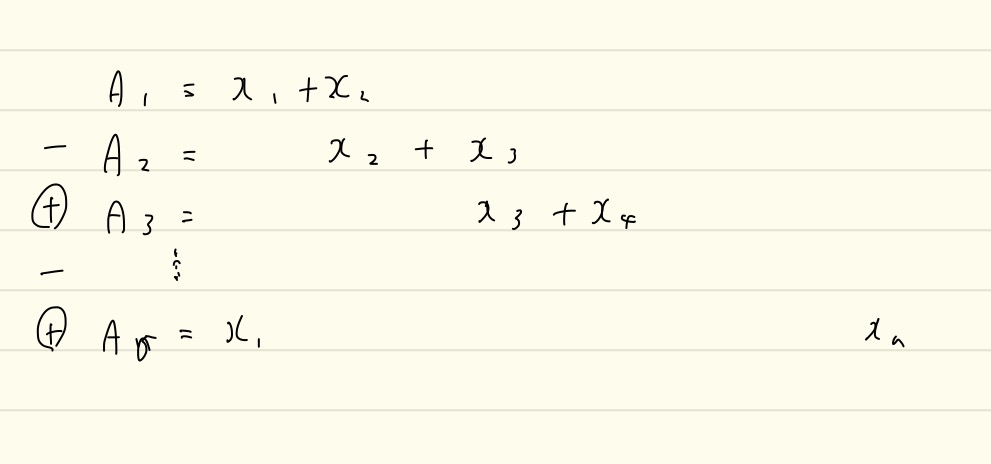 A₁ = x₁ + x₂
− A₂ = x₂ + x₃
⊕ A₃ = x₃ + x₄
− ⋮
⊕ A = x₁ xₙ